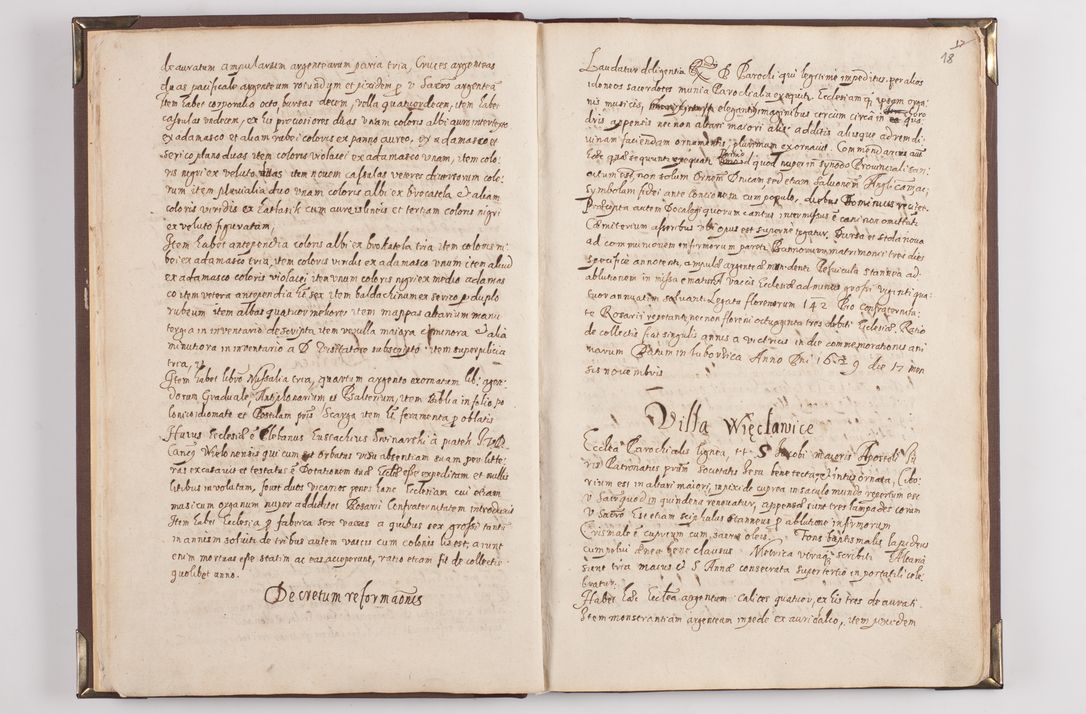 deauratum ampularum argentearum paria tria, Cruces argenteas
duas pacificale argenteum rotundum et pixidem p. v. Sacro argenteã
Item habet corporalia octo, bursas decem, vella quatuordecem, item habet
casulas undecem, ex iis preciosiores duas unam coloris albi auro intertexto
ex adamasco et aliam rubei coloris ex panno aureo, ex adamasco et
serico plano duas item coloris violacei ex adamasco unam, item colo:
ris nigri ex veluto item novem casulas veteres diversorum colo:
rum item pluvialia duo unam coloris albi ex brocatela & aliam
coloris viridis ex cum aureis lineis et tertiam coloris nigri
ex veluto figuratam,
Item habet antependia coloris albi ex brokatela tria, item coloris ru:
bei ex adamasco tria, item coloris viridis ex adamasco unum item aliud
ex adamasco coloris violacei item unum coloris nigri ex medio adamas
co item vetera antependia sex item baldachinum ex serico duplo
rubeum item albas quatuor meliores item mappas altarium manu
tergia in inventario descripta item vexilla maiora & minora & alia
minutiora in inventario a D. Visitatore subscripto item superpelicia
tria,
Item habet libros Missalia tria, quartum argento exornatum lib: agen:
dorum Graduale, Antiphonarium et Psalterium, item Biblia in folio po
lonico idiomate et Postillam Scarga item ferramenta p. oblatis
Huius Ecclesiæ Plebanus Eustachius Swinarski à piatek
Canc Wielonensis qui cum absentiam suam per litte:
ras excusavit et testatus Dotationem suæ expeditam et nullis
litibus involutam, fovet duos vicarios penes hanc Ecclesiam cui etiam
musicum organum nuper addidit et Rosarii Confraternitatem introducit
Item habet Ecclesia p. fabrica sex vaccas a quibus sex grossi tantũ
in annum solvit de tribus autem vaccis cum colonis lis est, aiunt
enim mortuas esse statim ac eas acceperunt, ratio etiam fit de collectis
quolibet anno.
Decretum reformaõnis
17
18
Laudatur diligentia D. Parochi qui legitime impeditus, per alios
idoneos sacerdotes munia Parochialia exequit. Ecclesiam q, ipsam orga
nis musicis, elegantib imaginibus circum circa in choro qua
dris appensis nec non altari maiori aliis additis aliisque ad rem di:
vinam faciendam ornamentis, plurimum exornavit. Commendamus aut
quæ sequunt exequat. Primo id quod nuper in synodo Provinciali san:
citum est, non solum Oronem Dnicam, sed etiam Salutonem Angelicam ac,
symbolum fidei ante Concionem cum populo, diebus Dominicis recitet.
Præcepta autem Decalogi quorum cantus intermissus cani non omittat.
Cæmiterium asseribus ubi opus est superne tegatur, Bursa et stola nova
ad communionem infirmorum paret. Patrinorum matrimonii tres dies
specifice annotent, ampulæ argenteæ mundent. Pelvicula stannea ad
ablutionem in missa ematur. Vaccis Ecclesiæ ad minus grossi viginti qua
tuor annuatim solvant. Legata florenorum 142 Pro confraternita:
te Rosarii repetant, nec non floreni octuaginta tres debiti Ecclesiæ. Ratio
de collectis fiat singulis annis a victricis in die commemorationis ani
marum Datum in Luborzica Anno Dni 16 9 die 17 men
sis novembris
Villa Więcławice
Ecclea Parochialis lignea, tit S Jacobi maioris Apostoli
ris Patronatus Societatis Jesu bene tecta & intus ornata, Cibo:
rium est in altari maiori, in pixide cuprea in saculo mundo repertum est
v Sacr quod in quindena renovatur, appensæ sunt tres lampades coram
v Sacro Est etiam scyphulus stanneus p ablutione infirmorum
Crismale cupreum cum sacris oleis, Fons baptismalis lapideus
cum pelvi ænea bene clausus. Metrica utraq scribit Altaria
sunt tria maius & S. Annæ consecrata super tertio in portatili cele:
bratur.
Habet hæc Ecclea argentum calices quatuor, ex iis tres deaurati.
Item monstrantiam argenteam in pede ex auricalco, item pixidem